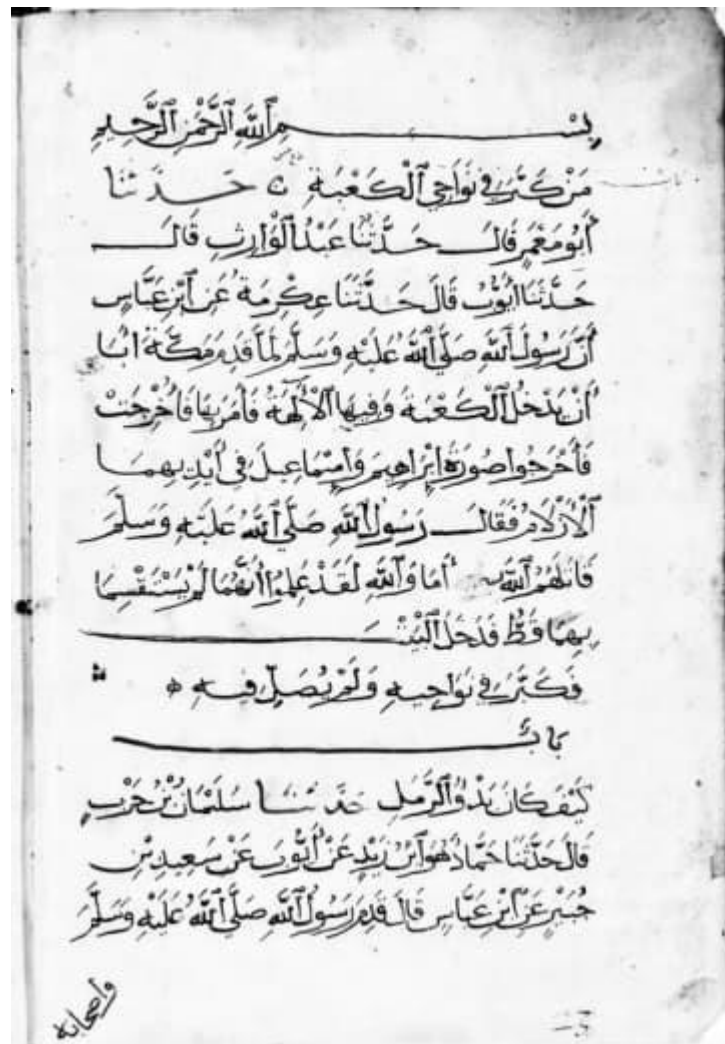 بِسْمِ ٱللَّهِ ٱلرَّحْمَٰنِ ٱلرَّحِيمِ
مَنْ كَبَّرَ فِي نَوَاحِي ٱلْكَعْبَةِ ۝ حَدَّثَنَا
أَبُو مَعْمَرٍ قَالَ حَدَّثَنَا عَبْدُ ٱلْوَارِثِ قَالَ
حَدَّثَنَا أَيُّوبُ قَالَ حَدَّثَنَا عِكْرِمَةُ عَنِ ٱبْنِ عَبَّاسٍ
أَنَّ رَسُولَ ٱللَّهِ صَلَّى ٱللَّهُ عَلَيْهِ وَسَلَّمَ لَمَّا قَدِمَ مَكَّةَ ابَا
أَنْ يَدْخُلَ ٱلْكَعْبَةَ وَفِيهَا ٱلْآلِهَةُ فَأَمَرَ بِهَا فَأُخْرِجَتْ
فَأَخْرَجُوا صُورَةَ إِبْرَاهِيمَ وَإِسْمَاعِيلَ فِي أَيْدِيهِمَا
ٱلْأَزْلَامُ فَقَالَ رَسُولُ ٱللَّهِ صَلَّى ٱللَّهُ عَلَيْهِ وَسَلَّمَ
قَاتَلَهُمُ ٱللَّهُ أَمَا وَٱللَّهِ لَقَدْ عَلِمُوا أَنَّهُمَا لَمْ يَسْتَقْسِمَا
بِهَا قَطُّ فَدَخَلَ ٱلْبَيْتَ
فَكَبَّرَ فِي نَوَاحِيهِ وَلَمْ يُصَلِّ فِيهِ
بَابُ
كَيْفَ كَانَ بَدْؤُ ٱلرَّمَلِ حَدَّثَنَا سُلَيْمَانُ بْنُ حَرْبٍ
قَالَ حَدَّثَنَا حَمَّادٌ هُوَ ٱبْنُ زَيْدٍ عَنْ أَيُّوبَ عَنْ سَعِيدِ بْنِ
جُبَيْرٍ عَنِ ٱبْنِ عَبَّاسٍ قَالَ قَدِمَ رَسُولُ ٱللَّهِ صَلَّى ٱللَّهُ عَلَيْهِ وَسَلَّمَ
وأصحابه